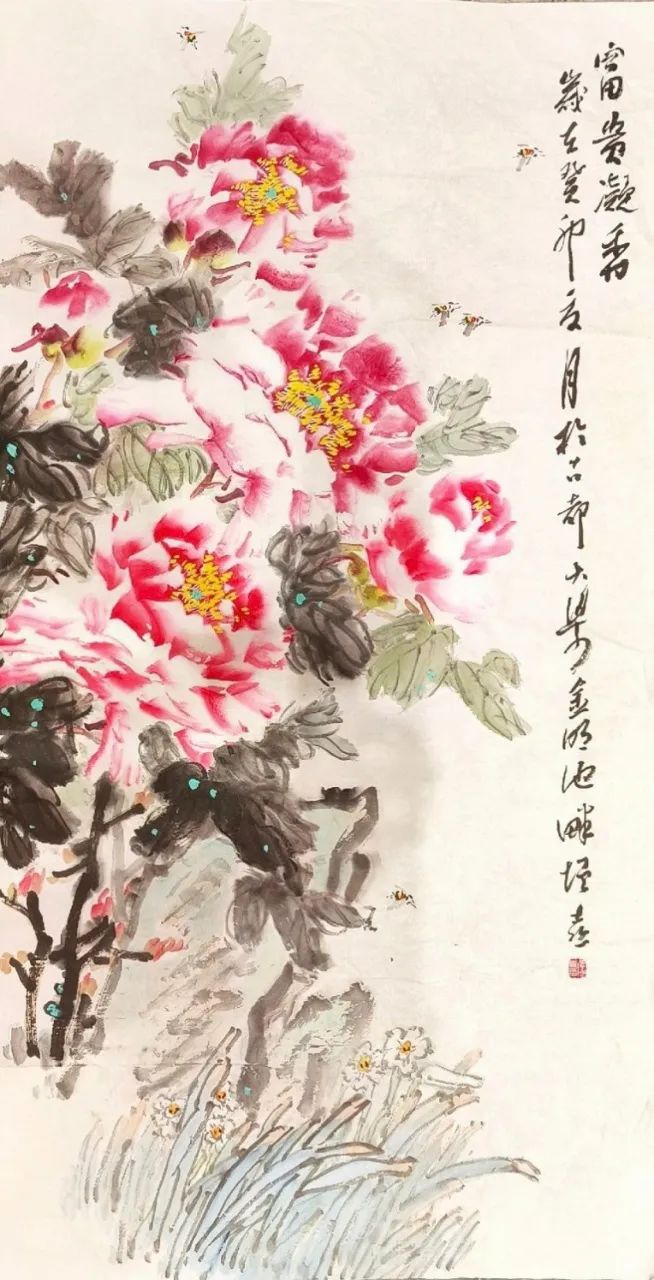 富贵凝香
岁在癸卯之月於古都大梁金明池畔